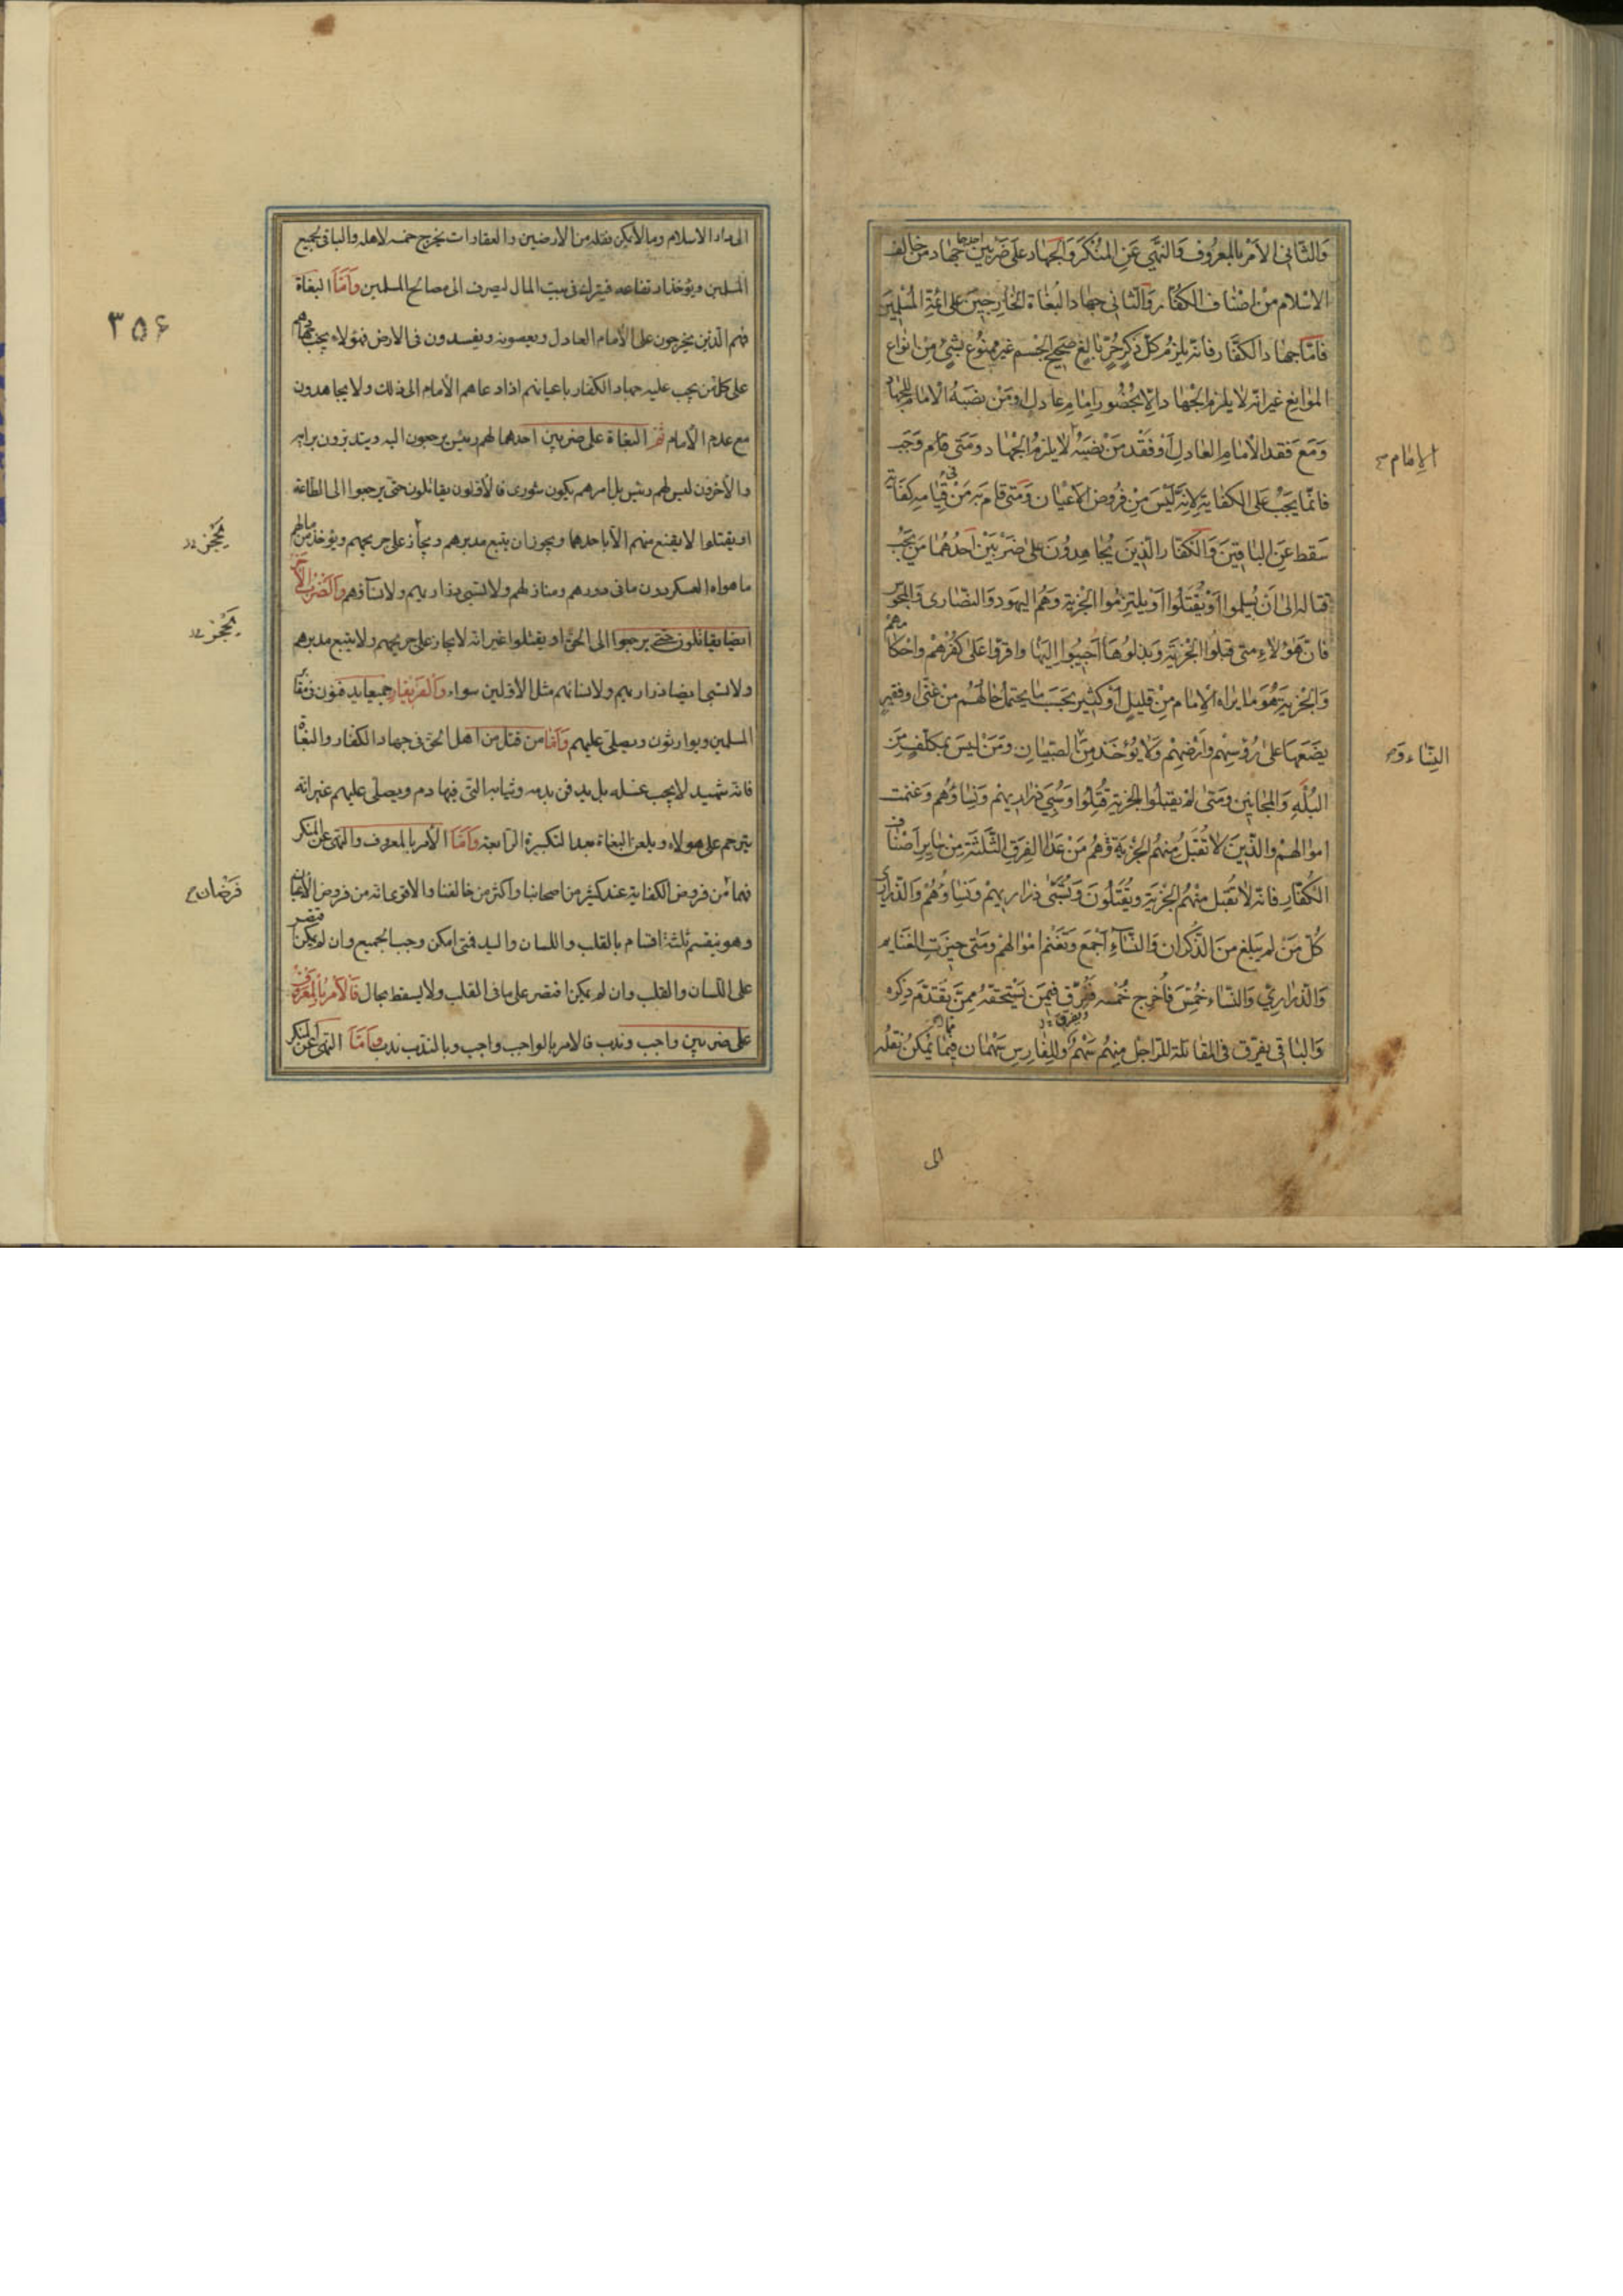 والثاني الامر بالمعروف والنهي عن المنكر والجهاد على ضربين احدهما جهاد من خالف
الاسلام من اصناف الكفار والثاني جهاد البغاة الخارجين على ائمة المسلمين
فاما جهاد الكفار فانه يلزم كل ذكر حر بالغ صحيح الجسم غير ممنوع بشيء من انواع
الموانع غير انه لا يلزم الجهاد الا بحضور امام عادل او من نصبه الامام للجهاد
ومع فقد الامام العادل او فقد من نصبه لا يلزم الجهاد ومتى قام وجب
الامام
فانما يجب على الكفاية لانه ليس من فروض الاعيان ومتى قام به من في قيامه كفاية
سقط عن الباقين والكفار الذين يجاهدون على ضربين احدهما من يجب
قتاله الى ان يسلموا او يقتلوا او يلتزموا الجزية وهم اليهود والنصارى والمجوس
فان هؤلاء متى قبلوا الجزية وبذلوها اجيبوا اليها واقروا على كفرهم واحكامهم
والجزية هو ما يراه الامام من قليل او كثير بحسب ما يحتمل حالهم من غنى او فقير
يضعها على رؤسهم وارضهم ولا يؤخذ من الصبيان ومن ليس بمكلف من
النساء و
البله والمجانين ومتى لم يقبلوا الجزية قتلوا وسبي ذراريهم ونساؤهم وغنمت
اموالهم والذين لا تقبل منهم الجزية فهم من عدا الفرق الثلثة من ساير اصناف
الكفار فانه لا تقبل منهم الجزية ويقتلون وتسبى ذراريهم ونساؤهم والذراري
كل من لم يبلغ من الذكران والنساء اجمع وتغنم اموالهم ومتى حيزت الغنايم
والذراري والنساء خمس فاخرج خمسه ففرق فيمن يستحقه ممن تقدم ذكره
والباقي يفرق في المقاتلة للراجل منهم سهم وللفارس سهمان فيما يمكن نقله
الى
٣٥۶
الى دار الاسلام وما لا يمكن نقله من الارضين والعقارات يخرج خمسه لاهله والباقي لجميع
المسلمين ويؤخذ ارتفاعه فيترك في بيت المال ليصرف الى مصالح المسلمين واما البغاة
فهم الذين يخرجون على الامام العادل ويعصونه ويفسدون في الارض فهؤلاء يجب جهادهم
على كل من يجب عليه جهاد الكفار باعيانهم اذا دعاهم الامام الى ذلك ولا يجاهدون
مع عدم الامام ثم البغاة على ضربين احدهما لهم رئيس يرجعون اليه ويتدبرون برايه
والآخرون ليس لهم رئيس بل امرهم يكون شورى فالاولون يقاتلون حتى يرجعوا الى الطاعة
او يقتلوا لا يقنع منهم الا باحدهما ويجوز ان يتبع مدبرهم ويجاز على جريحهم ويؤخذ من مالهم
يجهز
ما حواه العسكر دون ما في دورهم ومنازلهم ولا تسبى ذراريهم ولا نساؤهم والضرب الآخر
ايضا يقاتلون حتى يرجعوا الى الحق او يقتلوا غير انه لا يجاز على جريحهم ولا يتبع مدبرهم
يجهز
ولا تسبى ايضا ذراريهم ولا نسائهم مثل الاولين سواء والفريقان جميعا يدفنون في مقابر
المسلمين ويوارثون ويصلى عليهم واما من قتل من اهل الحق في جهاد الكفار والبغاة
فانه شهيد لا يجب غسله بل يدفن بدمه وثيابه التي فيها دم ويصلى عليهم غير انه
يترحم على هولاء ويلعن البغاة بعد التكبيرة الرابعة واما الامر بالمعروف والنهي عن المنكر
فهما من فروض الكفاية عند كثير من اصحابنا واكثر من خالفنا والاقوى انه من فروض الاعيان
فرضان
وهو ينقسم ثلثة اقسام بالقلب واللسان واليد فمتى امكن وجب الجميع وان لم يمكن اقتصر
على اللسان والقلب وان لم يمكن اقتصر على ما في القلب ولا يسقط بحال فالامر بالمعروف
على ضربين واجب وندب فالامر بالواجب واجب وبالندب ندب واما النهي عن المنكر